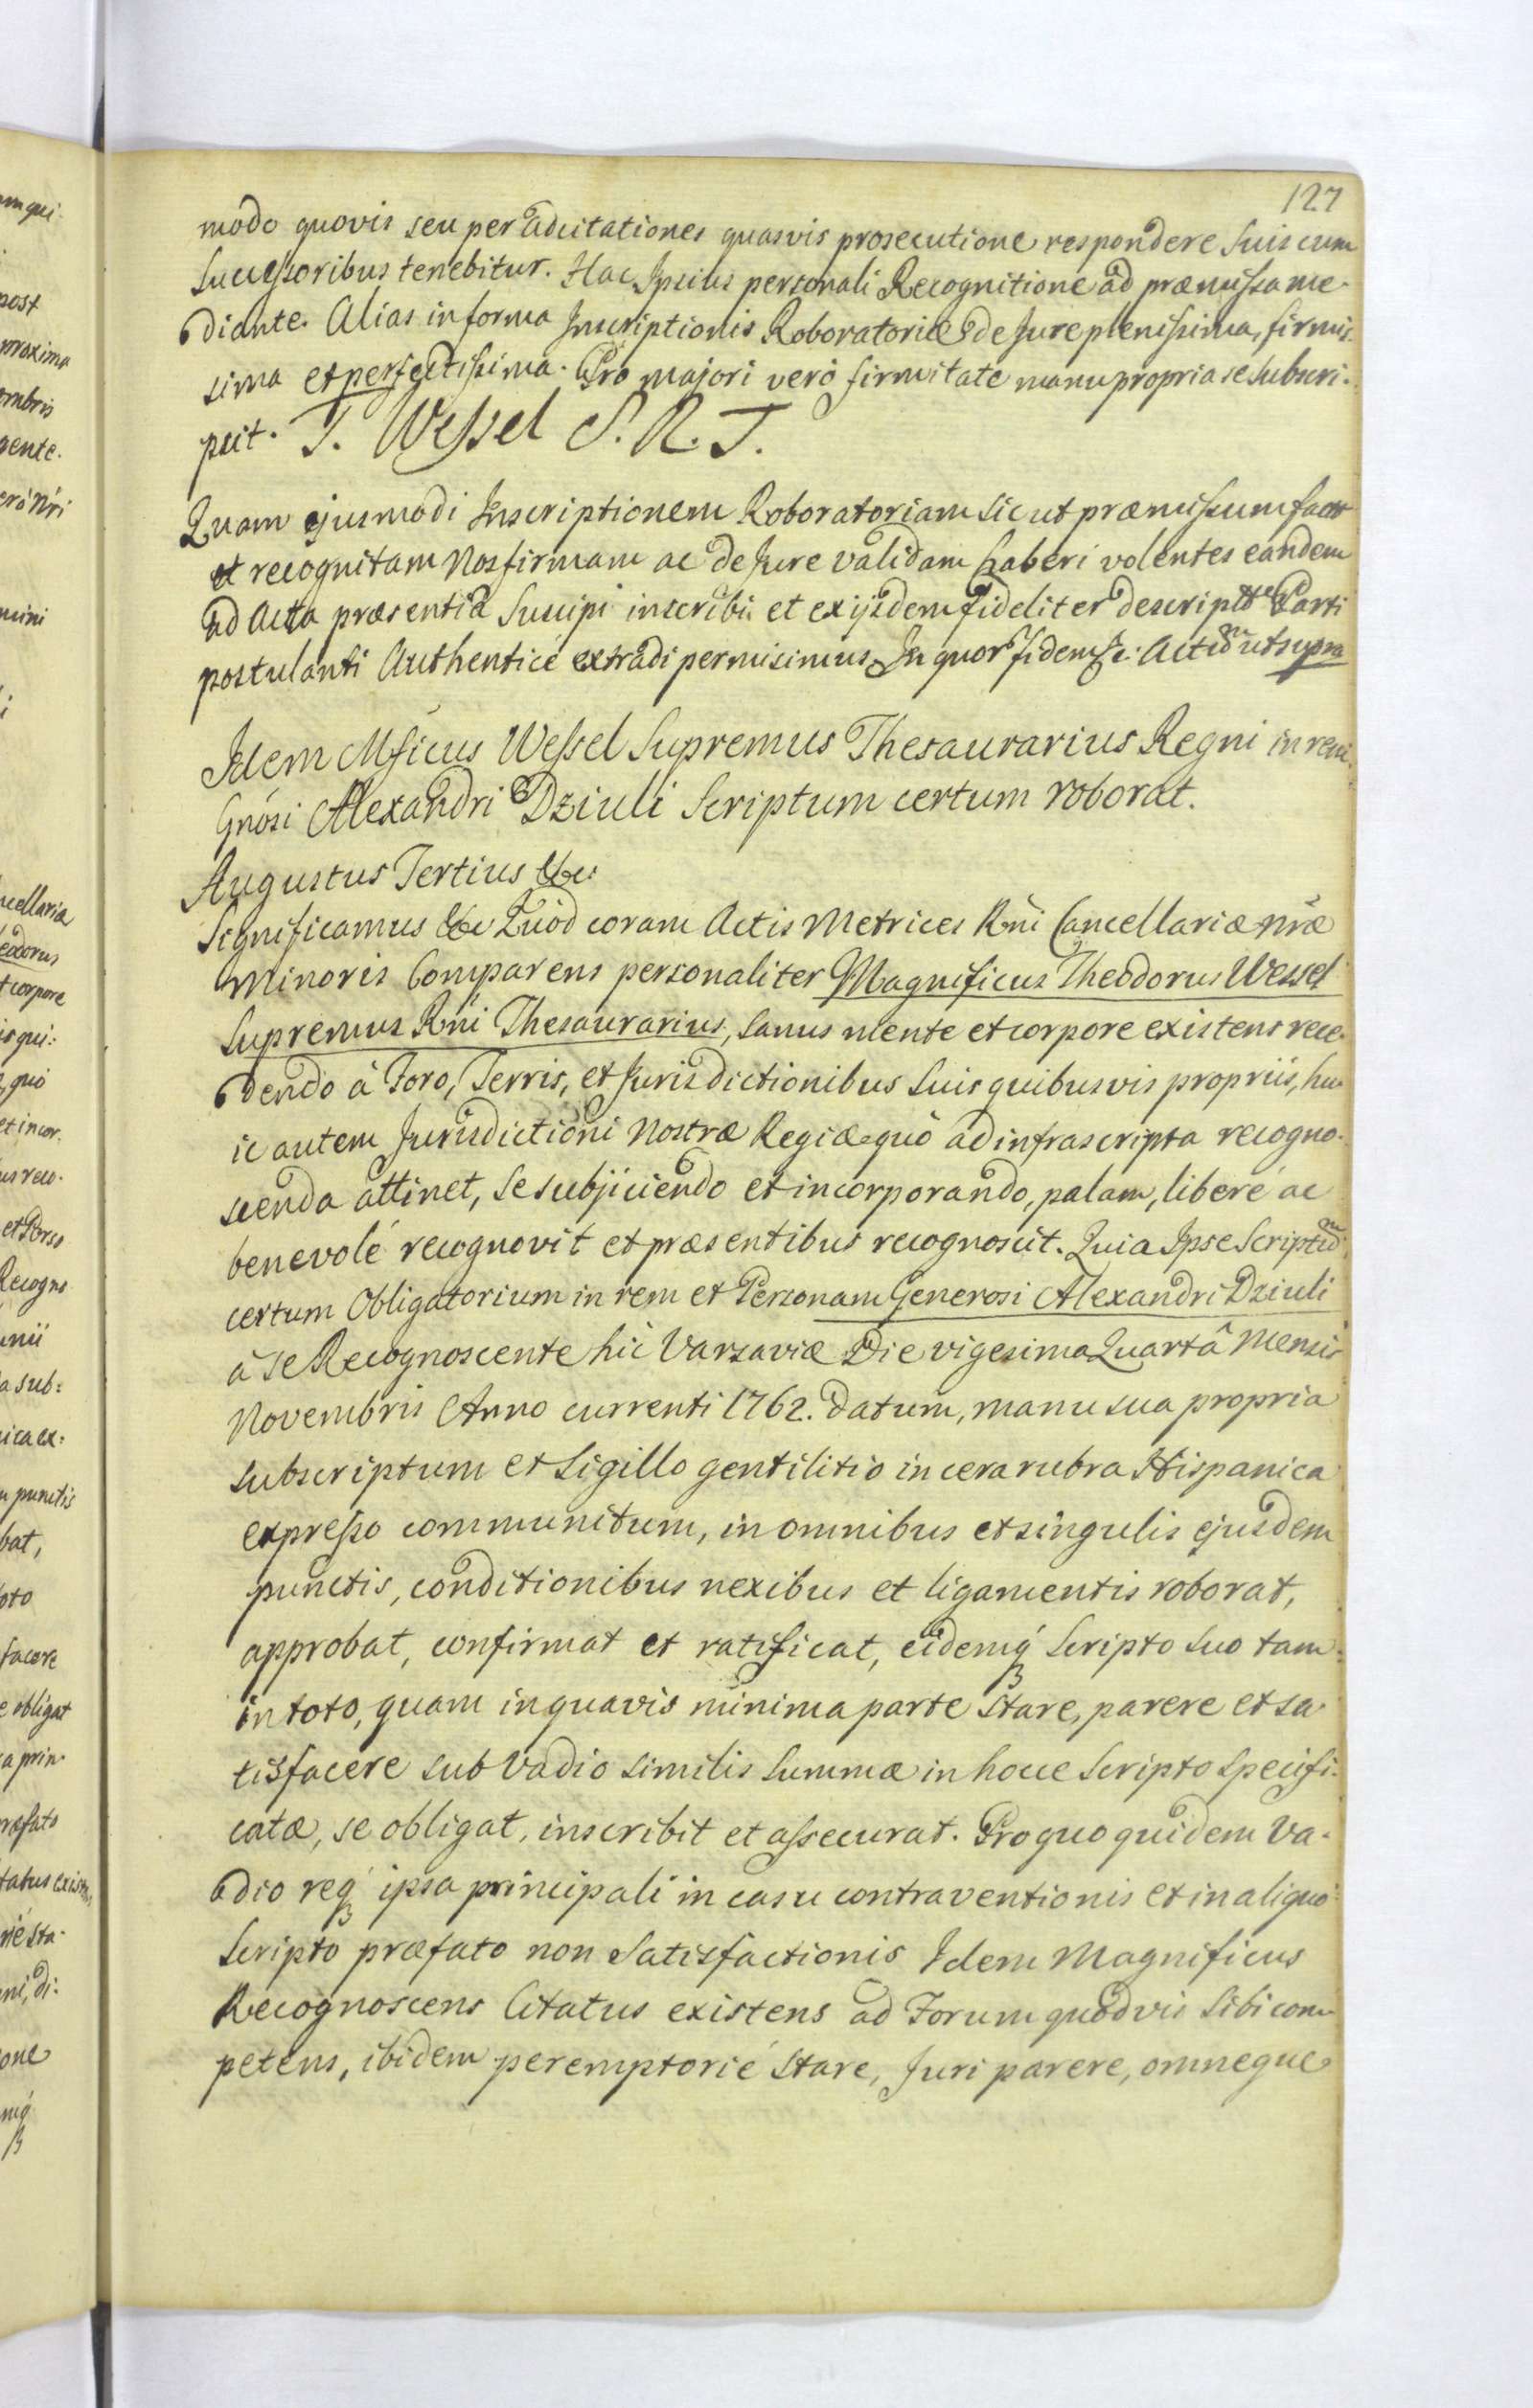 127
modo quovis seu per adcitationes quasvis prosecutione respondere suis cum
Successoribus tenebitur. Hac Ipsius personali Recognitione ad præmissa me-
diante. Alias in forma Inscriptionis Roboratoriæ de Jure plenissima, firmis-
sima et perfectissima. Pro majori verò firmitate manu propria se subscri-
psit. T. Wessel S. R. T.
Quam ejusmodi Inscriptionem Roboratoriam sicut præmissum
et recognitam Nos firmam ac de Jure validam haberi volentes eandem
ad Acta præsentia Suscipi inscribi et ex ijsdem fideliter Parti
postulanti Authenticè extradi permisimus In quor fidem &c: Actũ ut supra
Idem Mficus Wessel Supremus Thesaurarius Regni in rem
Gnosi Alexandri Dziuli Scriptum certum roborat.
Augustus Tertius &c:
Significamus &c Quod coram Actis Metrices Rni Cancellariæ nræ
Minoris Comparens personaliter Magnificus Theodorus Wessel
Supremus Rni Thesaurarius, sanus mente et corpore existens rece-
dendo à Foro, Terris, et Jurisdictionibus Suis quibusvis proprijs, hu-
ic autem Jurisdictioni Nostræ Regiæ quò ad infrascripta recogno-
scenda attinet, se subjiciendo et incorporando, palam, liberé ac
benevolé recognovit et præsentibus recognoscit. Quia Ipse Scriptũ
certum Obligatorium in rem et Personam Generosi Alexandri Dziuli
à se Recognoscente hic Varsaviæ Die vigesima Quartâ Mensis
Novembris Anno currenti 1762. datum, manu sua propria
subscriptum et Sigillo gentilitio in cera rubra Hispanica
expresso communitum, in omnibus et singulis ejusdem
punctis, conditionibus nexibus et ligamentis roborat,
approbat, confirmat et ratificat, eidemq́ Scripto suo tam
in toto, quam in quavis minima parte stare, parere et sa-
tisfacere sub Vadio similis Summæ in hocce Scripto specifi-
catæ, se obligat, inscribit et assecurat. Pro quo quidem Va-
dio req́ ipsa principali in casu contraventionis et in aliquo
Scripto præfato non Satisfactionis Idem Magnificus
Recognoscens Citatus existens ad Forum quodvis Sibi com-
petens, ibidem peremptorié stare, Juri parere, omneque